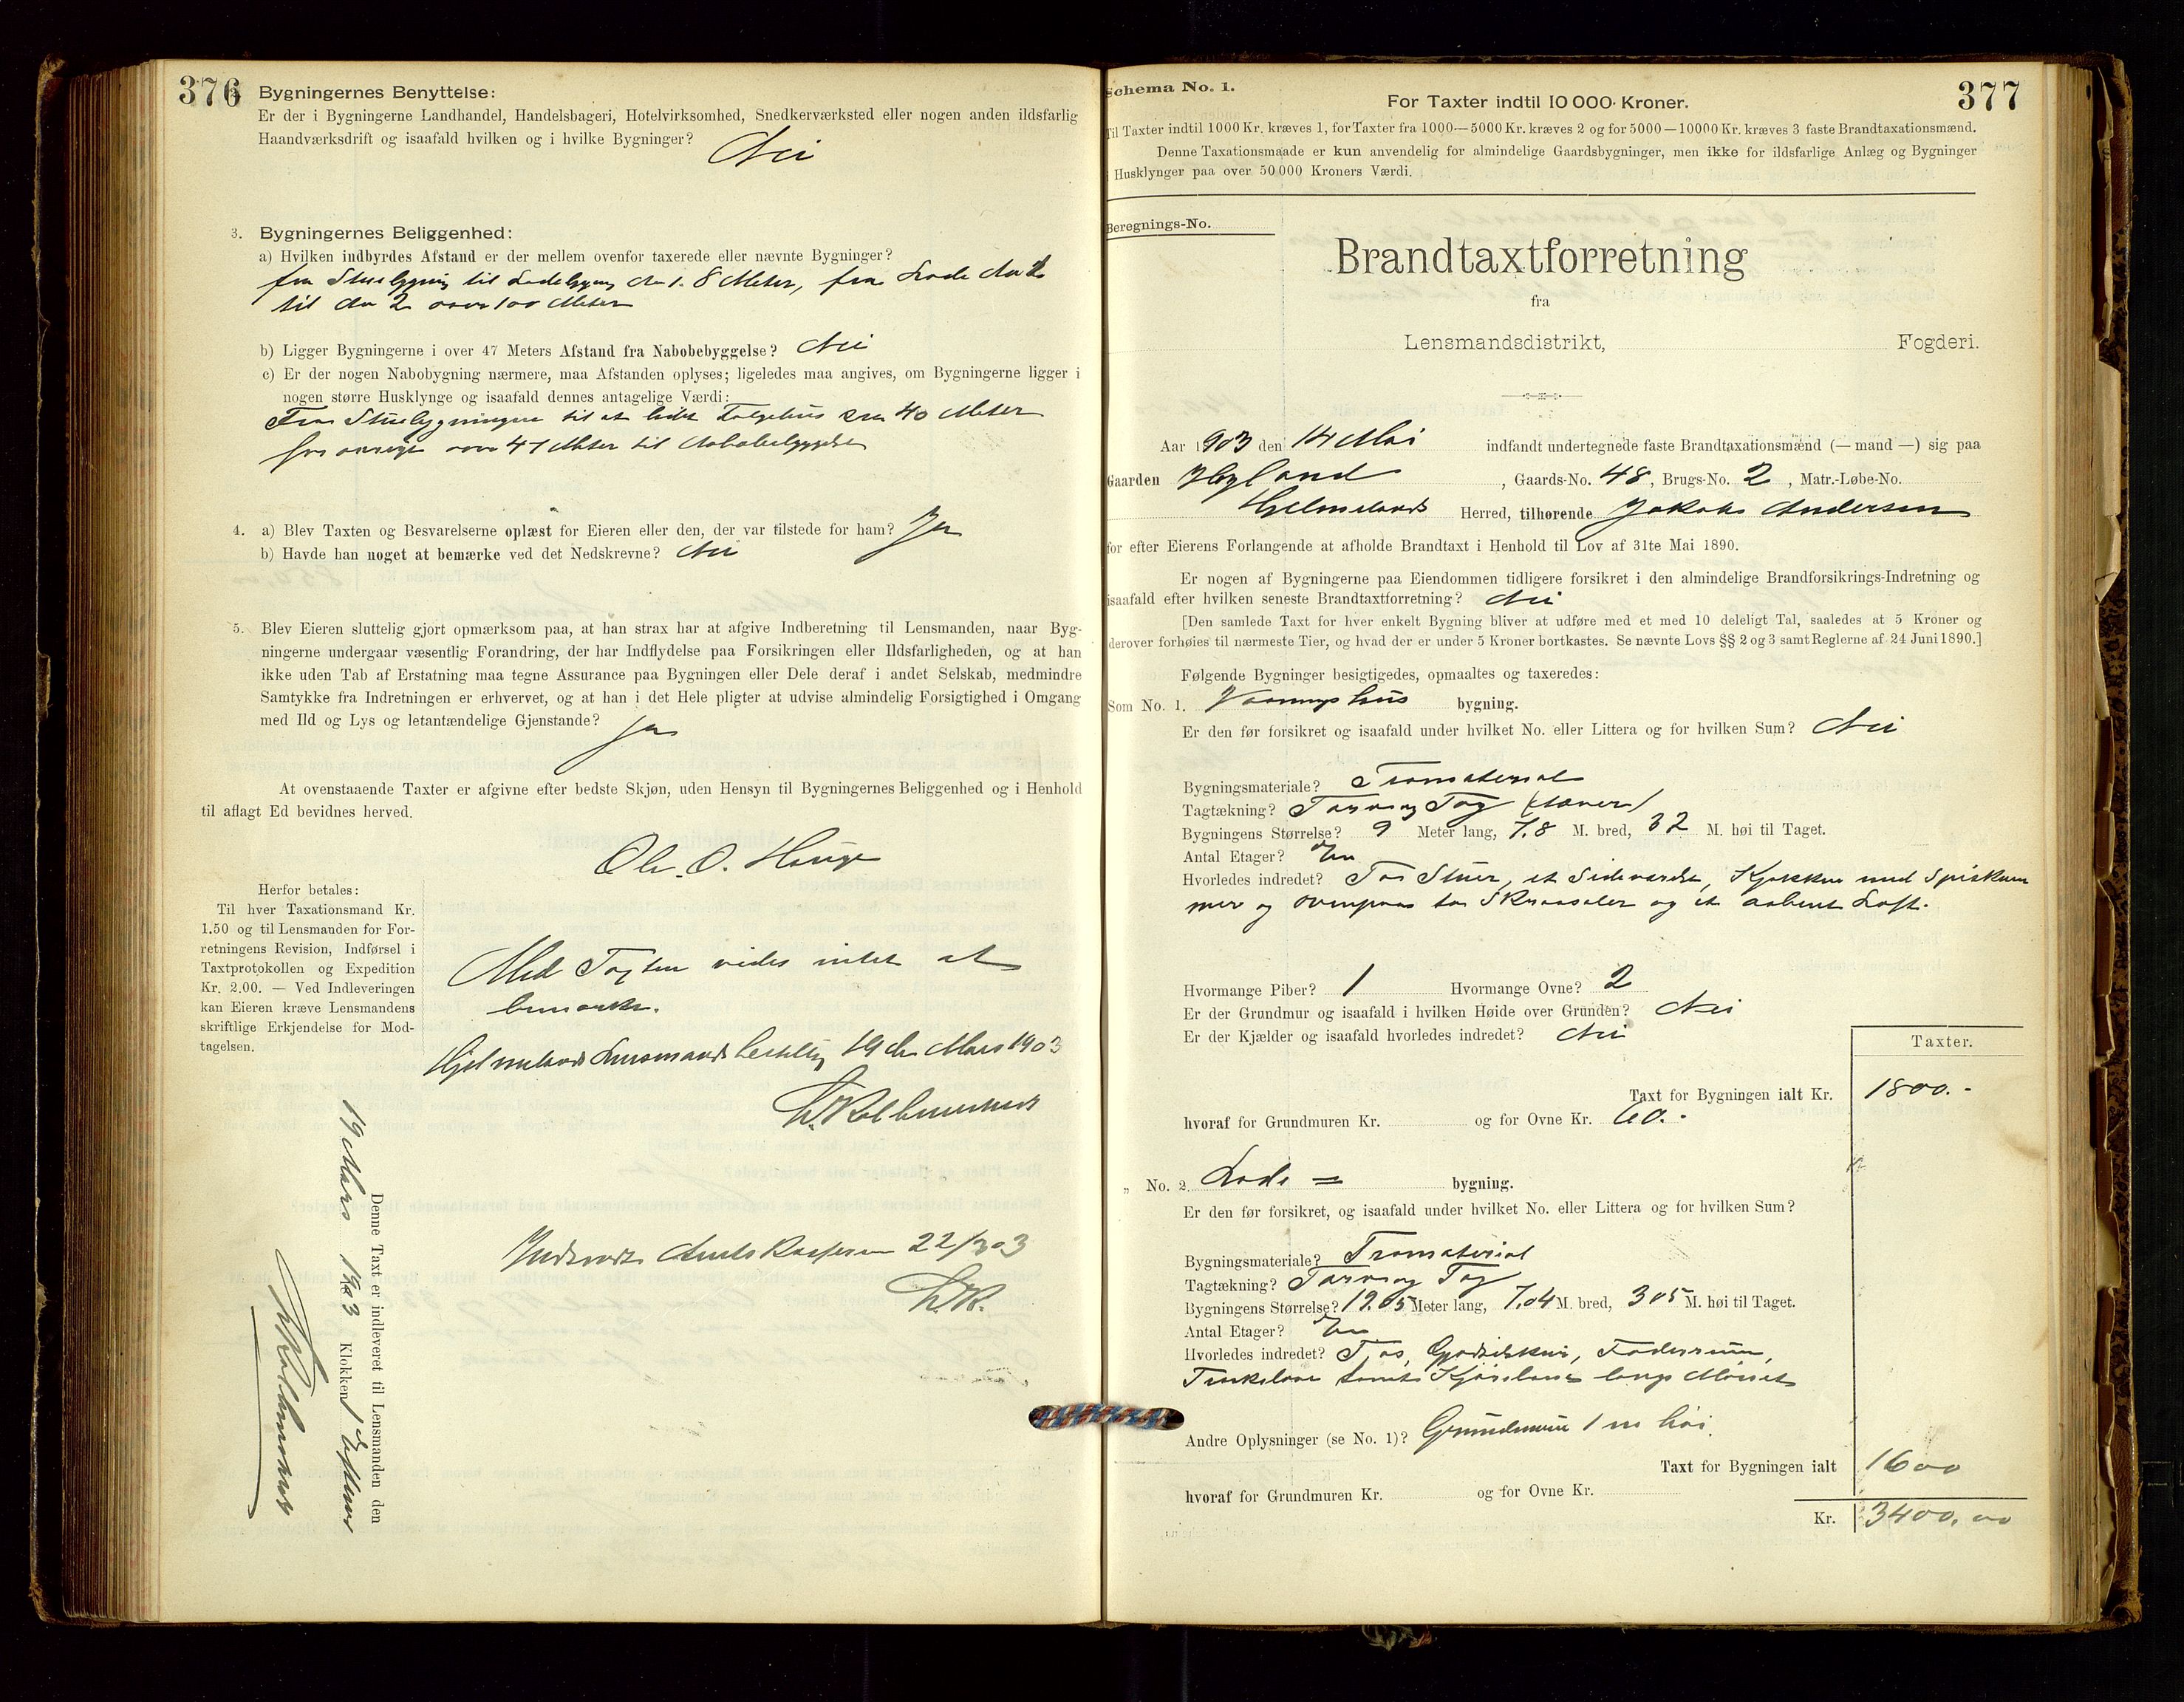 376
2. Bygningernes Benyttelse:
Er der i Bygningerne Landhandel, Handelsbageri, Hotelvirksomhed, Snedkerværksted eller nogen anden ildsfarlig
Haandværksdrift og isaafald hvilken og i hvilke Bygninger? Nei
3. Bygningernes Beliggenhed:
a) Hvilken indbyrdes Afstand er der mellem ovenfor taxerede eller nævnte Bygninger?
fra Stuebygning til Ladebygning No 1. 8 Meter, fra Lade No 1
til No 2 over 100 Meter
b) Ligger Bygningerne i over 47 Meters Afstand fra Nabobebyggelse? Nei
c) Er der nogen Nabobygning nærmere, maa Afstanden oplyses; ligeledes maa angives, om Bygningerne ligger i
nogen større Husklynge og isaafald dennes antagelige Værdi:
Fra Stuebygningen til et lidet Følgehus 40 Meter
for øvrigt over 47 Meter til Nabobebyggelse
4. a) Blev Taxten og Besvarelserne oplæst for Eieren eller den, der var tilstede for ham? Ja
b) Havde han noget at bemærke ved det Nedskrevne? Nei
5. Blev Eieren sluttelig gjort opmærksom paa, at han strax har at afgive Indberetning til Lensmanden, naar Byg-
ningerne undergaar væsentlig Forandring, der har Indflydelse paa Forsikringen eller Ildsfarligheden, og at han
ikke uden Tab af Erstatning maa tegne Assurance paa Bygningen eller Dele deraf i andet Selskab, medmindre
Samtykke fra Indretningen er erhvervet, og at han i det Hele pligter at udvise almindelig Forsigtighed i Omgang
med Ild og Lys og letantændelige Gjenstande? Ja
At ovenstaaende Taxter er afgivne efter bedste Skjøn, uden Hensyn til Bygningernes Beliggenhed og i Henhold
til aflagt Ed bevidnes herved.
Ole. O. Hauge
Herfor betales:
Til hver Taxationsmand Kr.
1.50 og til Lensmanden for For-
retningens Revision, Indførsel i
Taxtprotokollen og Expedition
Kr. 2.00. — Ved Indleveringen
kan Eieren kræve Lensmandens
skriftlige Erkjendelse for Mod-
tagelsen.
Med Taxten vides intet at
bemærke.
Hjelmelands Lensmandsbestilling 19de Mars 1903
Indsendt Amtskassereren 22/3 03
Denne Taxt er indleveret til Lensmanden den
19 Mars 1903 Klokken 1 Efterm
Schema No. 1.
377
For Taxter indtil 10 000 Kroner.
Til Taxter indtil 1000 Kr. kræves 1, for Taxter fra 1000—5000 Kr. kræves 2 og for 5000—10000 Kr. kræves 3 faste Brandtaxationsmænd.
Denne Taxationsmaade er kun anvendelig for almindelige Gaardsbygninger, men ikke for ildsfarlige Anlæg og Bygninger
i Husklynger paa over 50 000 Kroners Værdi.
Beregnings-No.
Brandtaxtforretning
fra
Lensmandsdistrikt, Fogderi.
Aar 1903 den 14 Mai indfandt undertegnede faste Brandtaxationsmænd (—mand—) sig paa
Gaarden Høyland, Gaards-No. 48, Brugs-No. 2, Matr.-Løbe-No.
Hjelmelands Herred, tilhørende Jakob Andersen
for efter Eierens Forlangende at afholde Brandtaxt i Henhold til Lov af 31te Mai 1890.
Er nogen af Bygningerne paa Eiendommen tidligere forsikret i den almindelige Brandforsikrings-Indretning og
isaafald efter hvilken seneste Brandtaxtforretning? Nei
[Den samlede Taxt for hver enkelt Bygning bliver at udføre med et med 10 deleligt Tal, saaledes at 5 Kroner og
derover forhøies til nærmeste Tier, og hvad der er under 5 Kroner bortkastes. Se nævnte Lovs §§ 2 og 3 samt Reglerne af 24 Juni 1890.]
Følgende Bygninger besigtigedes, opmaaltes og taxeredes:
Som No. 1. Vaaningshus bygning.
Er den før forsikret og isaafald under hvilket No. eller Littera og for hvilken Sum? Nei
Bygningsmateriale? Træmaterial
Tagtækning? Torv og Tag (Næver)
Bygningens Størrelse? 9 Meter lang, 7.8 M. bred, 32 M. høi til Taget.
Antal Etager? En
Hvorledes indredet? To Stuer, et Sideværelse, Kjøkken med Spiskam
mer og ovenpaa to Skraasaler og et aabent Loft.
Hvormange Piber? 1 Hvormange Ovne? 2
Er der Grundmur og isaafald i hvilken Høide over Grunden? Nei
Er der Kjælder og isaafald hvorledes indredet? Nei
Taxter.
Taxt for Bygningen ialt Kr. 1800.-
hvoraf for Grundmuren Kr. og for Ovne Kr. 60.-
„ No. 2 Lade = bygning.
Er den før forsikret, og isaafald under hvilket No. eller Littera og for hvilken Sum?
Bygningsmateriale? Træmaterial
Tagtækning? Torv og Tag
Bygningens Størrelse? 19.05 Meter lang, 7.04 M. bred, 305 M. høi til Taget.
Antal Etager? En
Hvorledes indredet? Fjøs, Gjødselskur, Foderrum,
samt langs
Andre Oplysninger (se No. 1)? Grundmur 1 m høi.
Taxt for Bygningen ialt 1600
hvoraf for Grundmuren Kr. og for Ovne Kr.
Kr. 3400.00